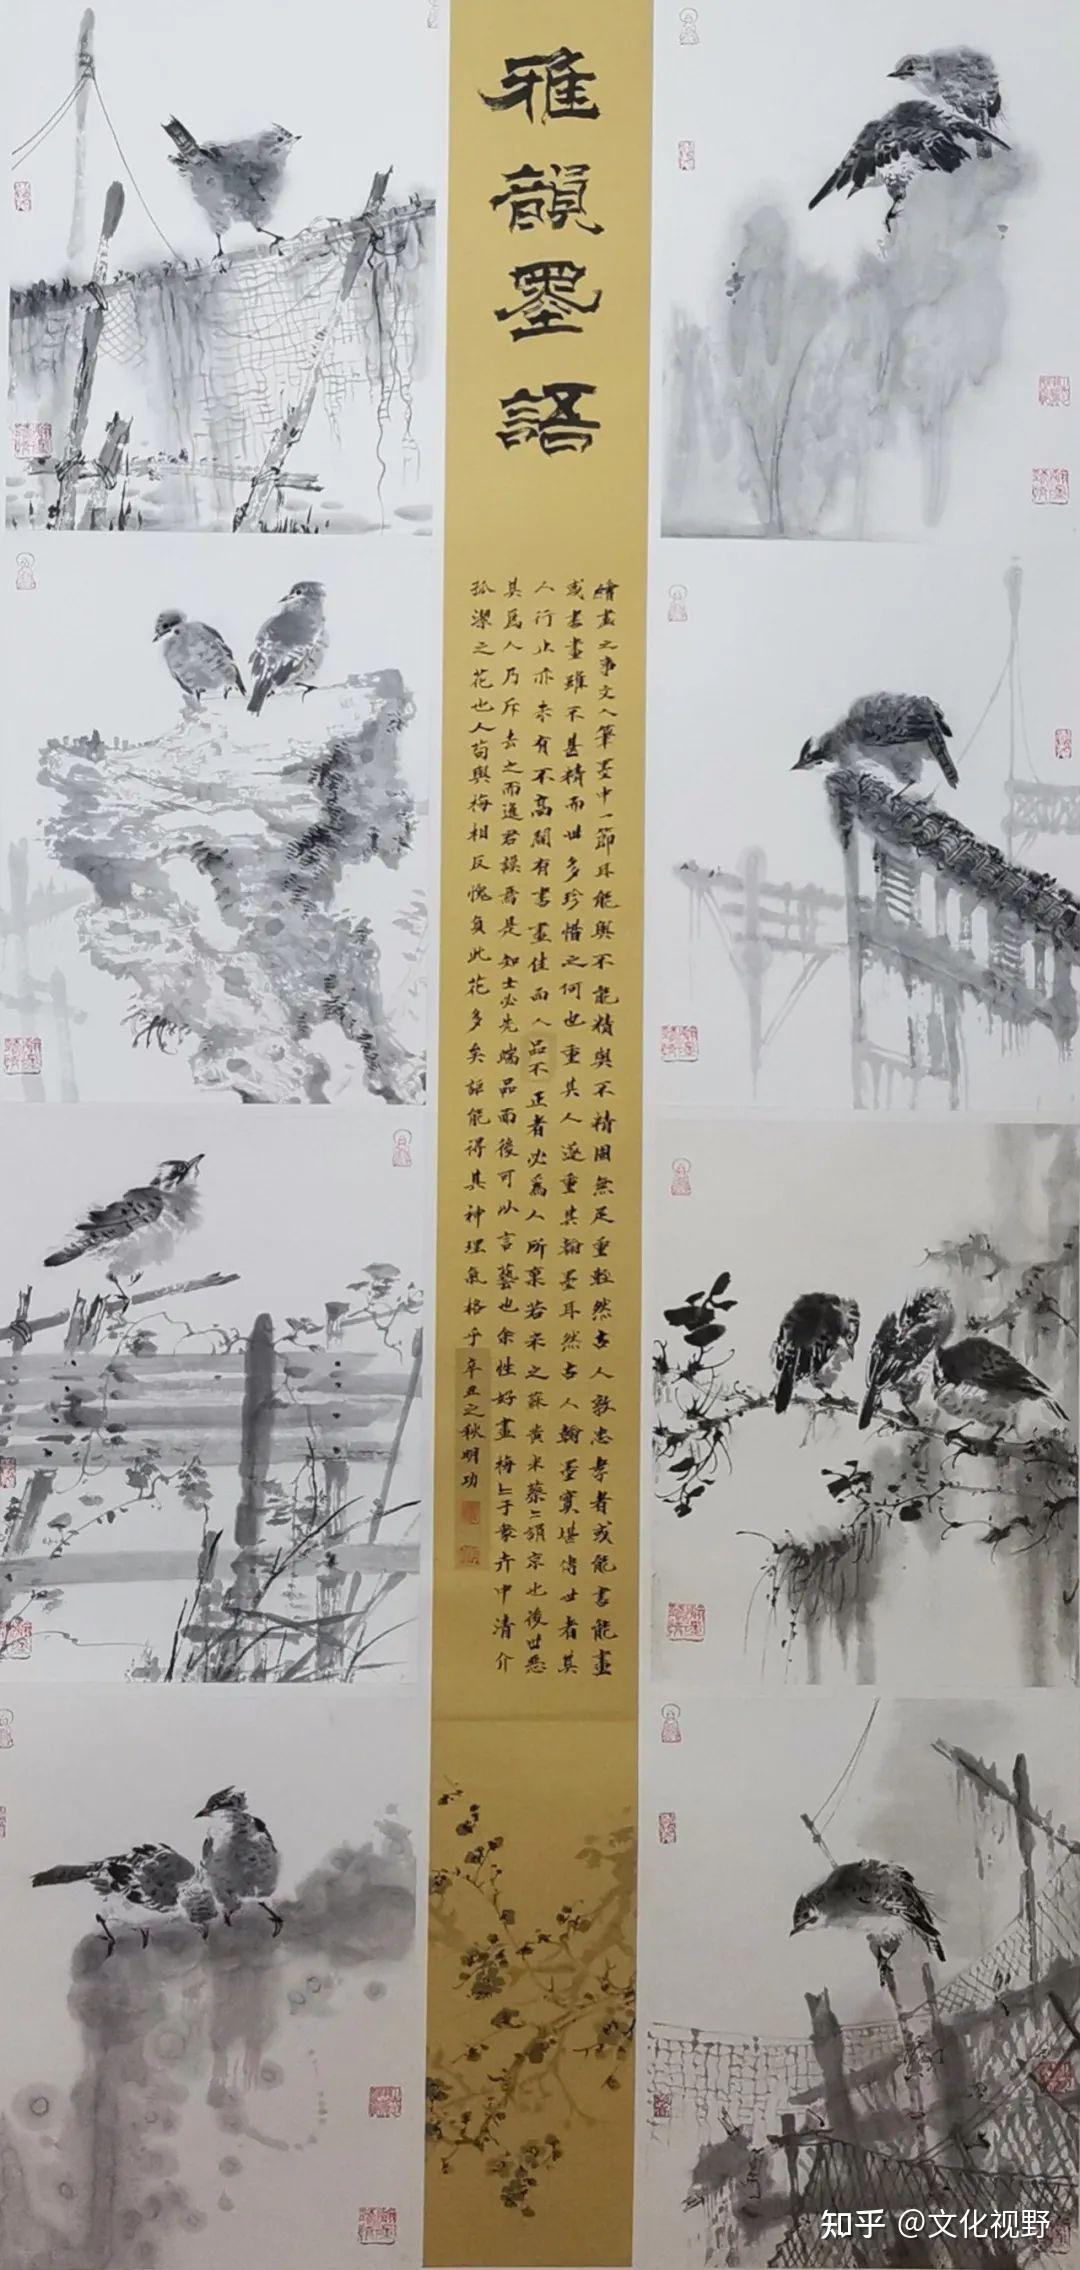 雅韻墨語
繪畫之事文人筆墨中一節耳能與不能精與不精固無足重輕然古人敦忠孝者或能書能畫
或書畫雖不甚精而世多珍惜之何也重其人遂重其翰墨耳然古人翰墨寞堪傳世者其
人行止亦未有不高間有書畫佳而人品不正者必為人所棄若宋之蘇黃米蔡〻謂京也後世惡
其爲人乃斥去之而進君謨焉是知士必先端品而後可以言藝也余性好畫梅〻于衆卉中清介
孤潔之花也人苟與梅相反愧負此花多矣詎能得其神理氣格乎辛丑之秋明功
知乎 @文化视野